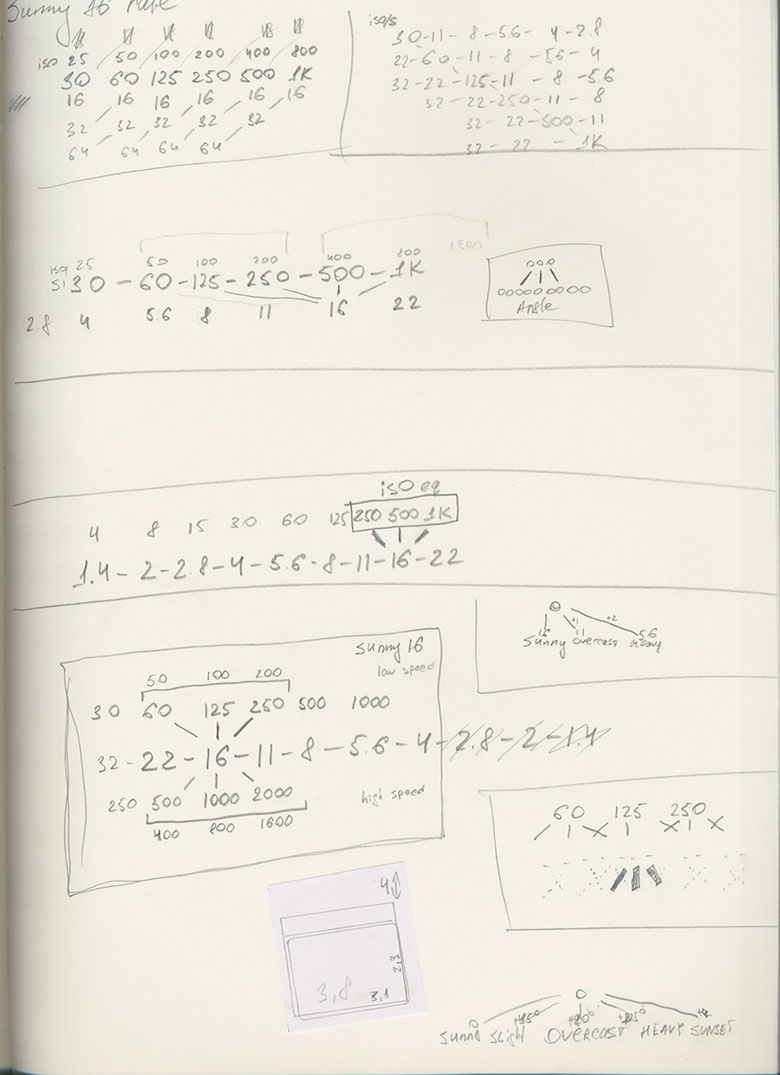 Sunny 16 rule
iso 25 50 100 200 400 800
30 60 125 250 500 1K
16 16 16 16 16 16
32 32 32 32 32
64 64 64 64
iso/s
30-11-8-5.6-4-2.8
22-60-11-8-5.6-4
32-22-125-11-8-5.6
32-22-250-11-8
32-22-500-11
32-22-1K
iso 25 50 100 200 400 800
S: 30-60-125-250-500-1K
2.8 4 5.6 8 11 16 22
000
00000 0000
Angle
iso eq
4 8 15 30 60 125 250 500 1K
1.4-2-2.8-4-5.6-8-11-16-22
16 +1 11 +2 5.6
Sunny overcast heavy
Sunny 16
low speed
50 100 200
30 60 125 250 500 1000
32-22-16-11-8-5.6-4-2.8-2-1.4
250 500 1000 2000
high speed
400 800 1600
60 125 250
4
2,3
3,8 3,1
Sunny Slight OVERCAST HEAVY SUNSET